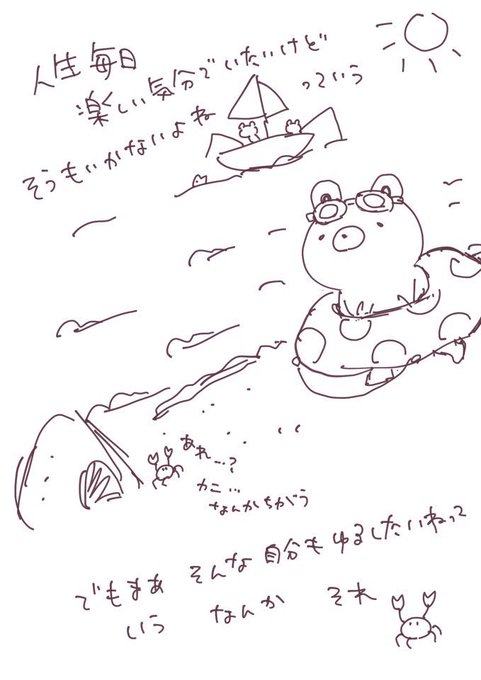 人生毎日
楽しい気分でいたいけど
そうもいかないよね
っていう
あれ…?
カニ…
なんかちがう
でもまあ そんな 自分も ゆるしたいねって
いう なんか それ